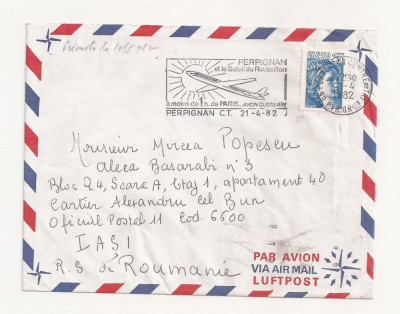 PERPIGNAN
et le Soleil du Roussillon
à moins de 1 h. de PARIS_AVION QUOTIDIEN
PERPIGNAN C.T. 21-4-82
Monsieur Mircea Popescu
aleea Basarabi n°3
Bloc Q4, Scara A, Etaj 1, apartament 40
Cartier Alexandru cel Bun
Oficiul Postal 11 Cod. 6600
IASI
R.S. de Roumanie
PAR AVION
VIA AIR MAIL
LUFTPOST